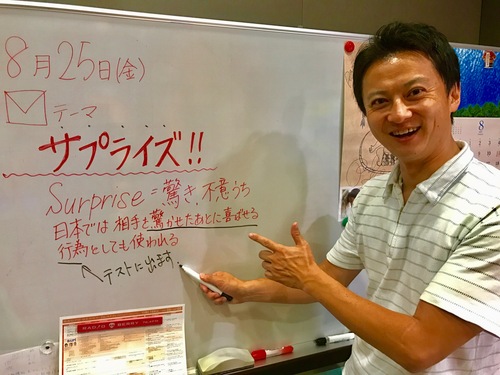 8月25日(金)
テーマ
サプライズ!!
Surprise=驚き、不意うち
日本では 相手を驚かせたあとに喜ばせる
行為としても使われる
テストに出ます。
RADIO BERRY
8